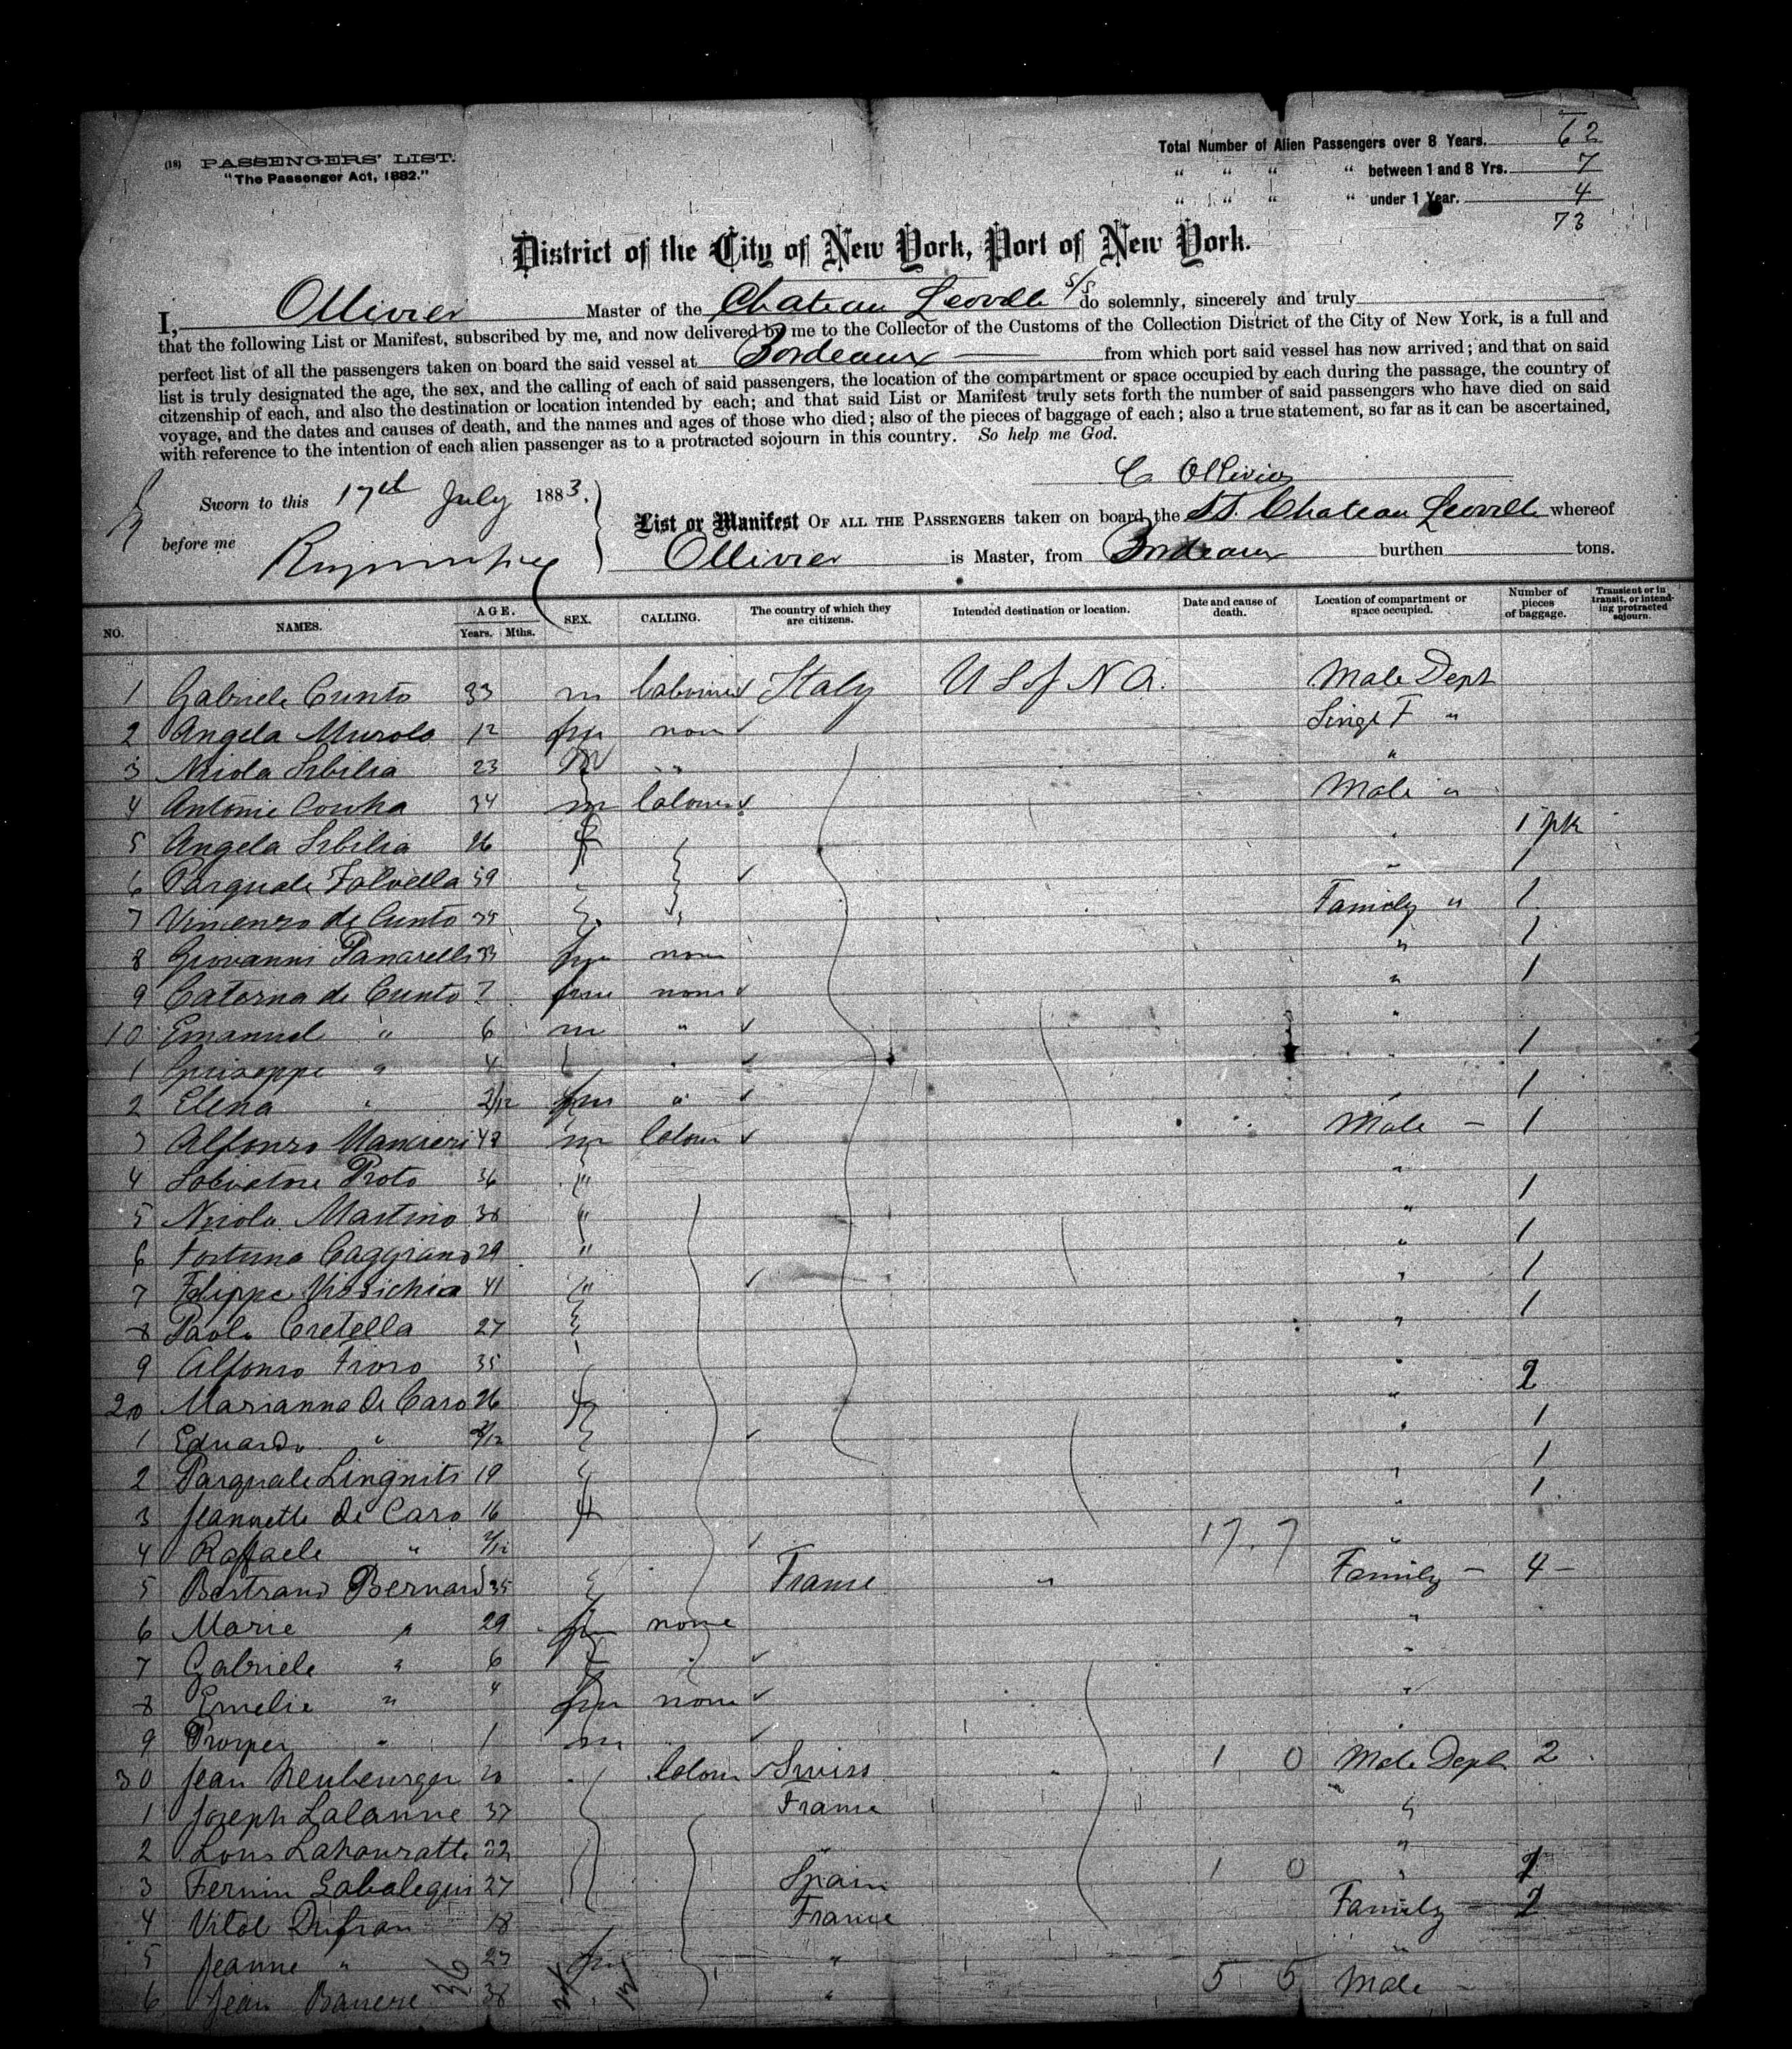 (18) PASSENGERS' LIST.
"The Passenger Act, 1882."
Total Number of Alien Passengers over 8 Years. 62
" " " " between 1 and 8 Yrs. 7
" " " " under 1 Year. 4
73
District of the City of New York, Port of New York.
I, Ollivier Master of the Chateau Leoville S/S do solemnly, sincerely and truly
that the following List or Manifest, subscribed by me, and now delivered by me to the Collector of the Customs of the Collection District of the City of New York, is a full and
perfect list of all the passengers taken on board the said vessel at Bordeaux from which port said vessel has now arrived; and that on said
list is truly designated the age, the sex, and the calling of each of said passengers, the location of the compartment or space occupied by each during the passage, the country of
citzenship of each, and also the destination or location intended by each; and that said List or Manifest truly sets forth the number of said passengers who have died on said
voyage, and the dates and causes of death, and the names and ages of those who died; also of the pieces of baggage of each; also a true statement, so far as it can be ascertained,
with reference to the intention of each alien passenger as to a protracted sojourn in this country. So help me God.
C Ollivier
Sworn to this 17th July 1883,
before me
List or Manifest OF ALL THE PASSENGERS taken on board the SS. Chateau Leoville whereof
Ollivier is Master, from Bordeaux burthen tons.
NO. NAMES. AGE. Years. Mths. SEX. CALLING. The country of which they are citizens. Intended destination or location. Date and cause of death. Location of compartment or space occupied. Number of pieces of baggage. Transient or in transit, or intending protracted sojourn.
1 Gabriele Cunto 33 m labourer Italy U S of N A. Male Dept
2 Angela Murolo 12 fm none Singl F "
3 Nicola Sibilia 23 m " "
4 Antonio 34 m labour Male "
5 Angela Sibilia 26 f 1 pk
6 Pasquale 59 1
7 Vincenzo de Cunto 35 " Family " 1
8 Giovanni Panarelli 33 fm none " 1
9 Caterna de Cunto 7 fm none " 1
10 Emanuel " 6 m " "
1 Giuseppe " 4 " 1
2 Elena " 2/12 fm " 1
3 Alfonzo 42 m labour Male - 1
4 Salvatore Proto 36 " "
5 Nicola Martino 38 " " 1
6 Fortuna 29 " " 1
7 Filippo 41 " " 1
8 Paolo Cretella 27 " 1
9 Alfonso 35 " 2
20 Marianna de Caro 26 f "
1 Eduardo " /12 " 1
2 Pasquale 19 " 1
3 Jeannette de Caro 16 f " 1
4 Raffaele " /12 17. 7 "
5 Bertrand Bernard 35 France " Family - 4 -
6 Marie " 29 fm none "
7 Gabriele " 6 "
8 Emelie " 4 fm none "
9 Prosper " 1 m "
30 Jean Neuburger 20 labour Swiss " 1 0 Male Dept 2
1 Joseph Lalanne 37 France "
2 Louis 22 " "
3 Fermin 27 Spain 1 0 " 2
4 Vital Dufran 18 France Family - 2
5 Jeanne " 23 fm " "
6 Jean 38 " 5 5 Male -
36